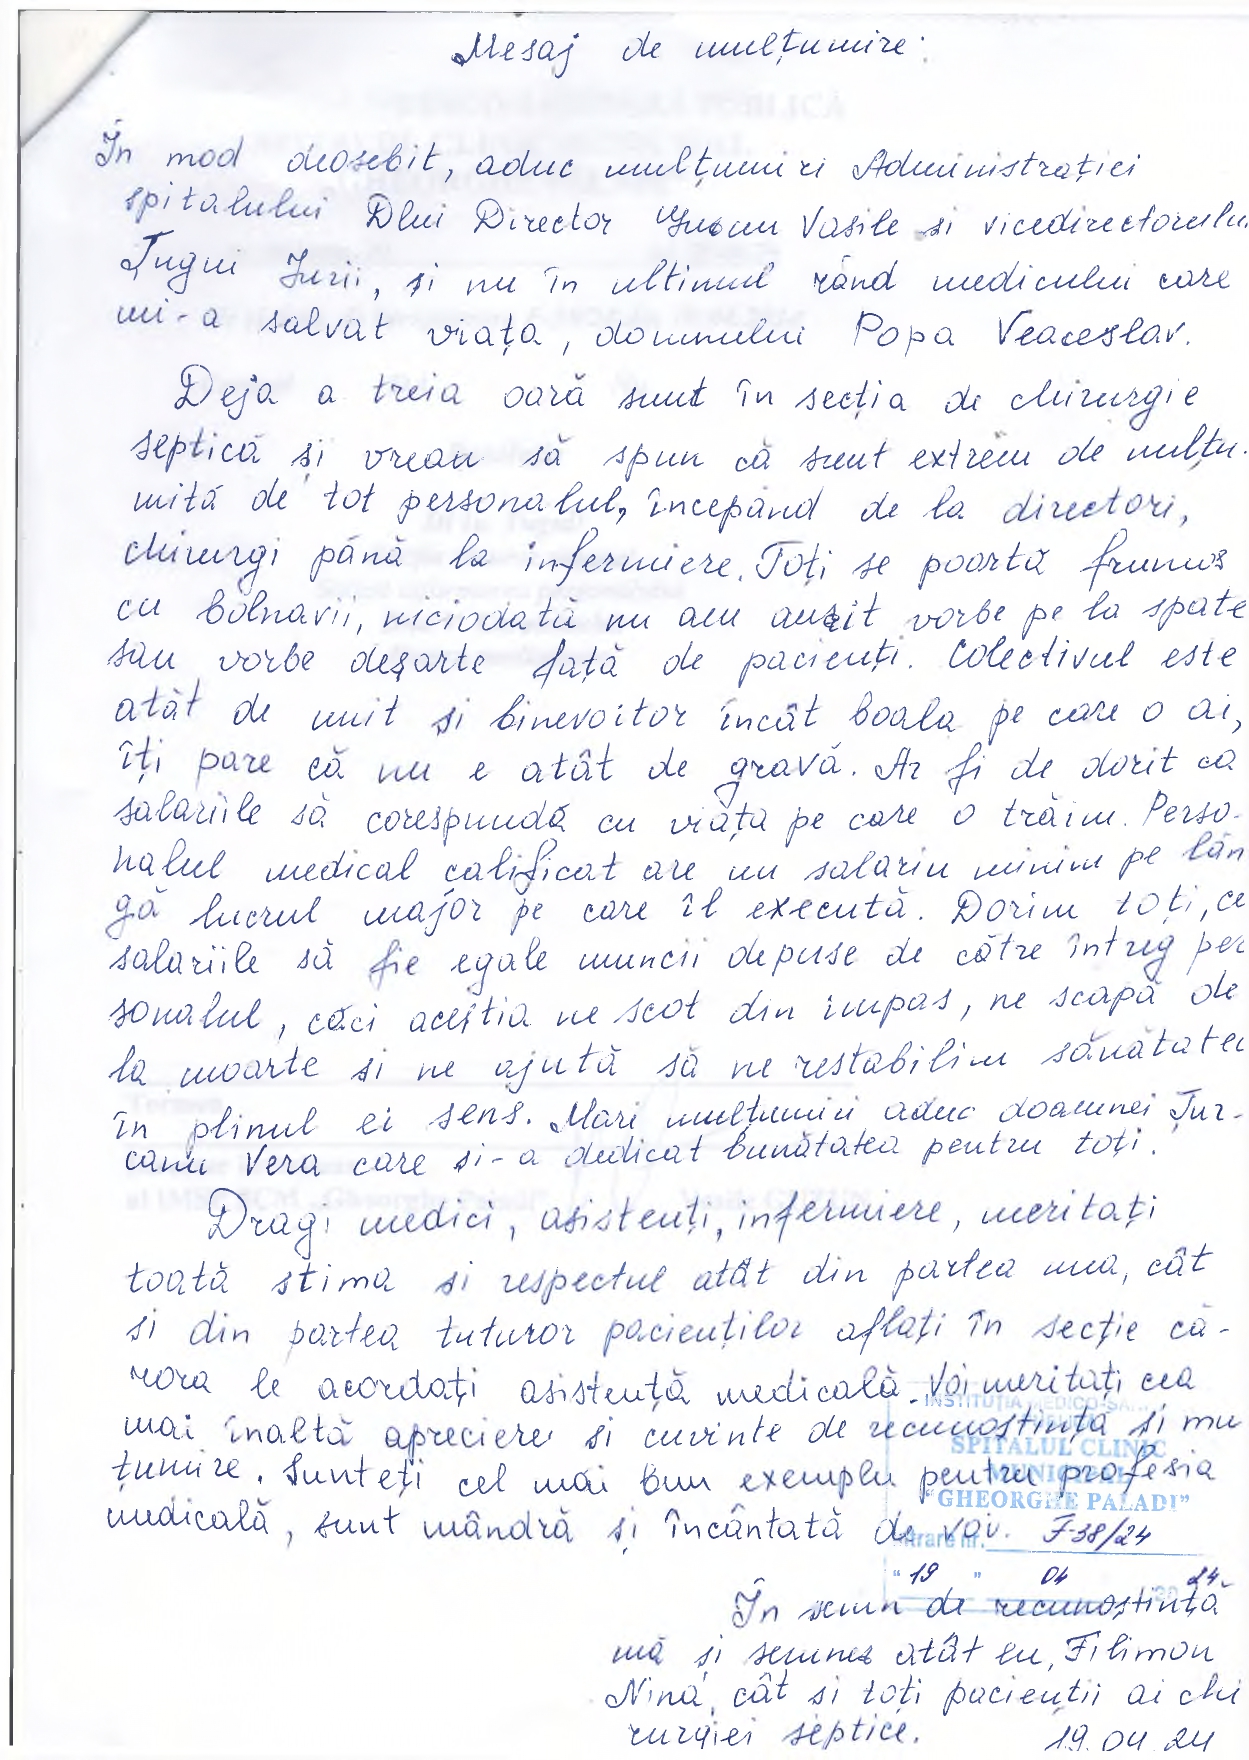 Mesaj de mulțumire:
În mod deosebit, aduc mulțumiri Administrației
spitalului Dlui Director Vasile si vicedirectorului
Țugui Iurii, și nu în ultimul rând medicului care
mi-a salvat viața, domnului Popa Veaceslav.
Deja a treia oară sunt în secția de chirurgie
septică și vreau să spun că sunt extrem de mulțu-
mită de tot personalul, începând de la directori,
chirurgi până la infermiere. Toți se poartă frumos
cu bolnavii, niciodată nu am auzit vorbe pe la spate
sau vorbe deșarte față de pacienți. Colectivul este
atât de unit și binevoitor încât boala pe care o ai,
îți pare că nu e atât de gravă. Ar fi de dorit ca
salariile să corespundă cu viața pe care o trăim. Perso-
nalul medical calificat are un salariu minim pe lân
gă lucrul major pe care îl execută. Dorim toți, ca
salariile să fie egale muncii depuse de către întreg per
sonalul, căci aceștia ne scot din impas, ne scapă de
la moarte si ne ajută să ne restabilim sănătatea
în plinul ei sens. Mari mulțumiri aduc doamnei Țur-
canu Vera care si-a dedicat bunătatea pentru toți.
Dragi medici, asistenți, infermiere, meritați
toată stima si respectul atât din partea mea, cât
si din partea tuturor pacienților aflați în secție că-
rora le acordați asistență medicală. Voi meritați cea
mai înaltă apreciere si cuvinte de recunoștință și mu
țumire. Sunteți cel mai bun exemplu pentru profesia
medicală, sunt mândră și încântată de voi.
INSTITUȚIA MEDICO-SA...
SPITALUL CLINIC
MUNICIPAL
"GHEORGHE PALADI"
Intrare nr. F-38/24
"19" 04 2024
În semn de recunoștință
mă și semnez atât eu, Filimon
Nina, cât si toți pacienții ai chi
rurgiei septice. 19.04.24